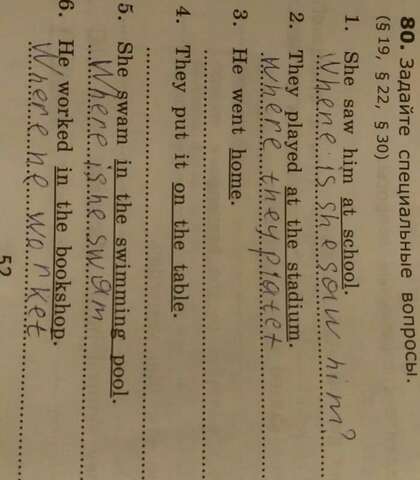 80. Задайте специальные вопросы.
(§ 19, § 22, § 30)
1. She saw him at school.
Where is she saw him?
2. They played at the stadium.
Where they platet
3. He went home.
4. They put it on the table.
5. She swam in the swimming pool.
Where is he swam
6. He worked in the bookshop.
Where he warket
52